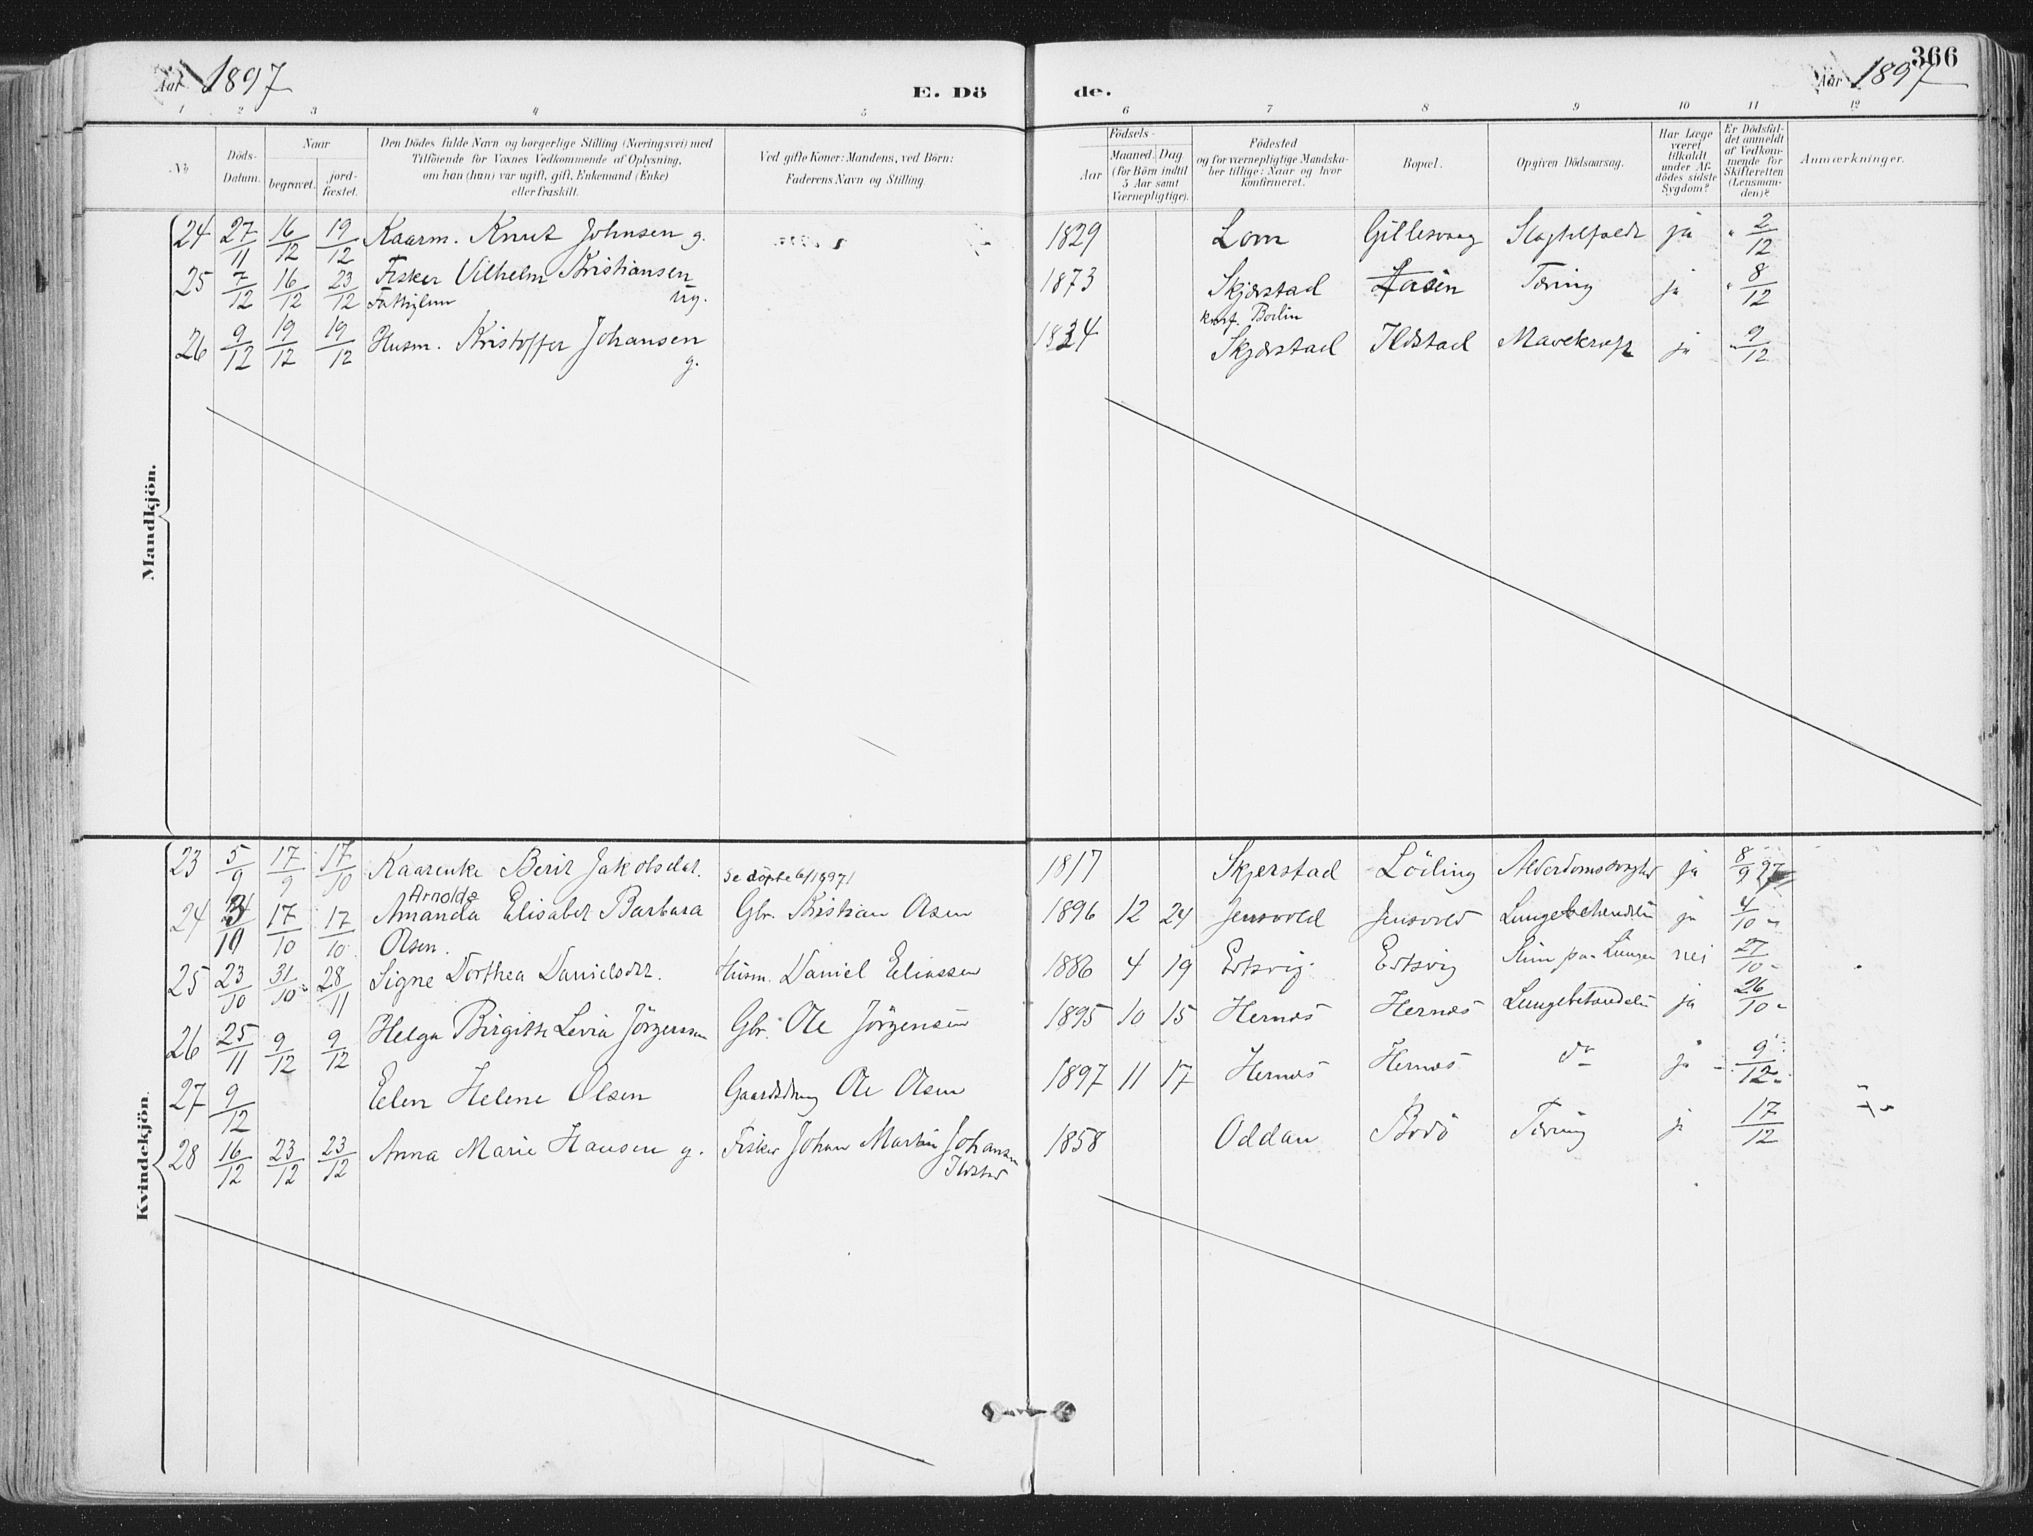 Aar 1897
E. Dö
de.
366
Aar 1897
1 2 3 4 5 6 7 8 9 10 11 12
No
Döds-
Datum.
Naar
begravet.
jord-
fæstet.
Den Dödes fulde Navn og borgerlige Stilling (Næringsvei) med
Tilföiende for Voxnes Vedkommende af Oplysning,
om han (hun) var ugift, gift, Enkemand (Enke)
eller fraskilt.
Ved gifte Koner: Mandens, ved Börn:
Faderens Navn og Stilling
Födsels-
Aar
Maaned. Dag
(for Börn indtil
5 Aar samt
Værnepligtige).
Födested
og for værnepligtige Mandska-
ber tillige: Naar og hvor
konfirmeret.
Bopæl.
Opgiven Dödsaarsag.
Har Læge
været
tilkaldt
under Af-
dödes sidste
Sygdom?
Er Dödsfal-
det anmeldt
af Vedkom-
mende for
Skifteretten
(Lensman-
den)?
Anmærkninger.
Mandkjön.
24 27/11 16/12 19/12 Kaarm. Knut Johnsen g. 1829 Lom Gillesvaag Slagtilfælde ja " 2/12
25 7/12 16/12 23/12 Fisker Vilhelm Kristiansen 1873 Skjærstad Tæring ja " 8/12
ug.
konf. Bodin
26 9/12 19/12 19/12 Husm. Kristoffer Johansen 1834 Skjærstad Ildstad Mavekræft ja 9/12
g.
Kvindekjön.
23 5/9 17/9 17/10 Kaarenke Berit Jakobsdat. 1817 Skjerstad Löding ja 8/9 97
se döpte 6/1897
Arnolda
24 17/10 17/10 Amanda Elisabet Barbara Gbr. Kristian Olsen 1896 12 24 Jensvold Jensvold Lungebetændelse ja 4/10 "
Olsen.
25 23/10 31/10 28/11 Signe Dorthea Danielsdt. Husm. Daniel Eliassen 1886 4 19 Ertsvig Ertsvig Slim paa Lungen nei 27/10 "
26 25/11 9/12 9/12 Helga Birgitte Levia Jörgensen Gbr. Ole Jörgensen 1895 10 15 Hernes Hernes Lungebetændelse ja 26/10 "
27 9/12 Elen Helene Olsen Gaardsdreng Ole Olsen 1897 11 17 Hernes Hernes do ja 9/12 "
28 16/12 23/12 23/12 Anna Marie Hansen g. Fisker Johan Martin Johansen 1858 Oddan Bodö Tæring ja 17/12
Ildstad